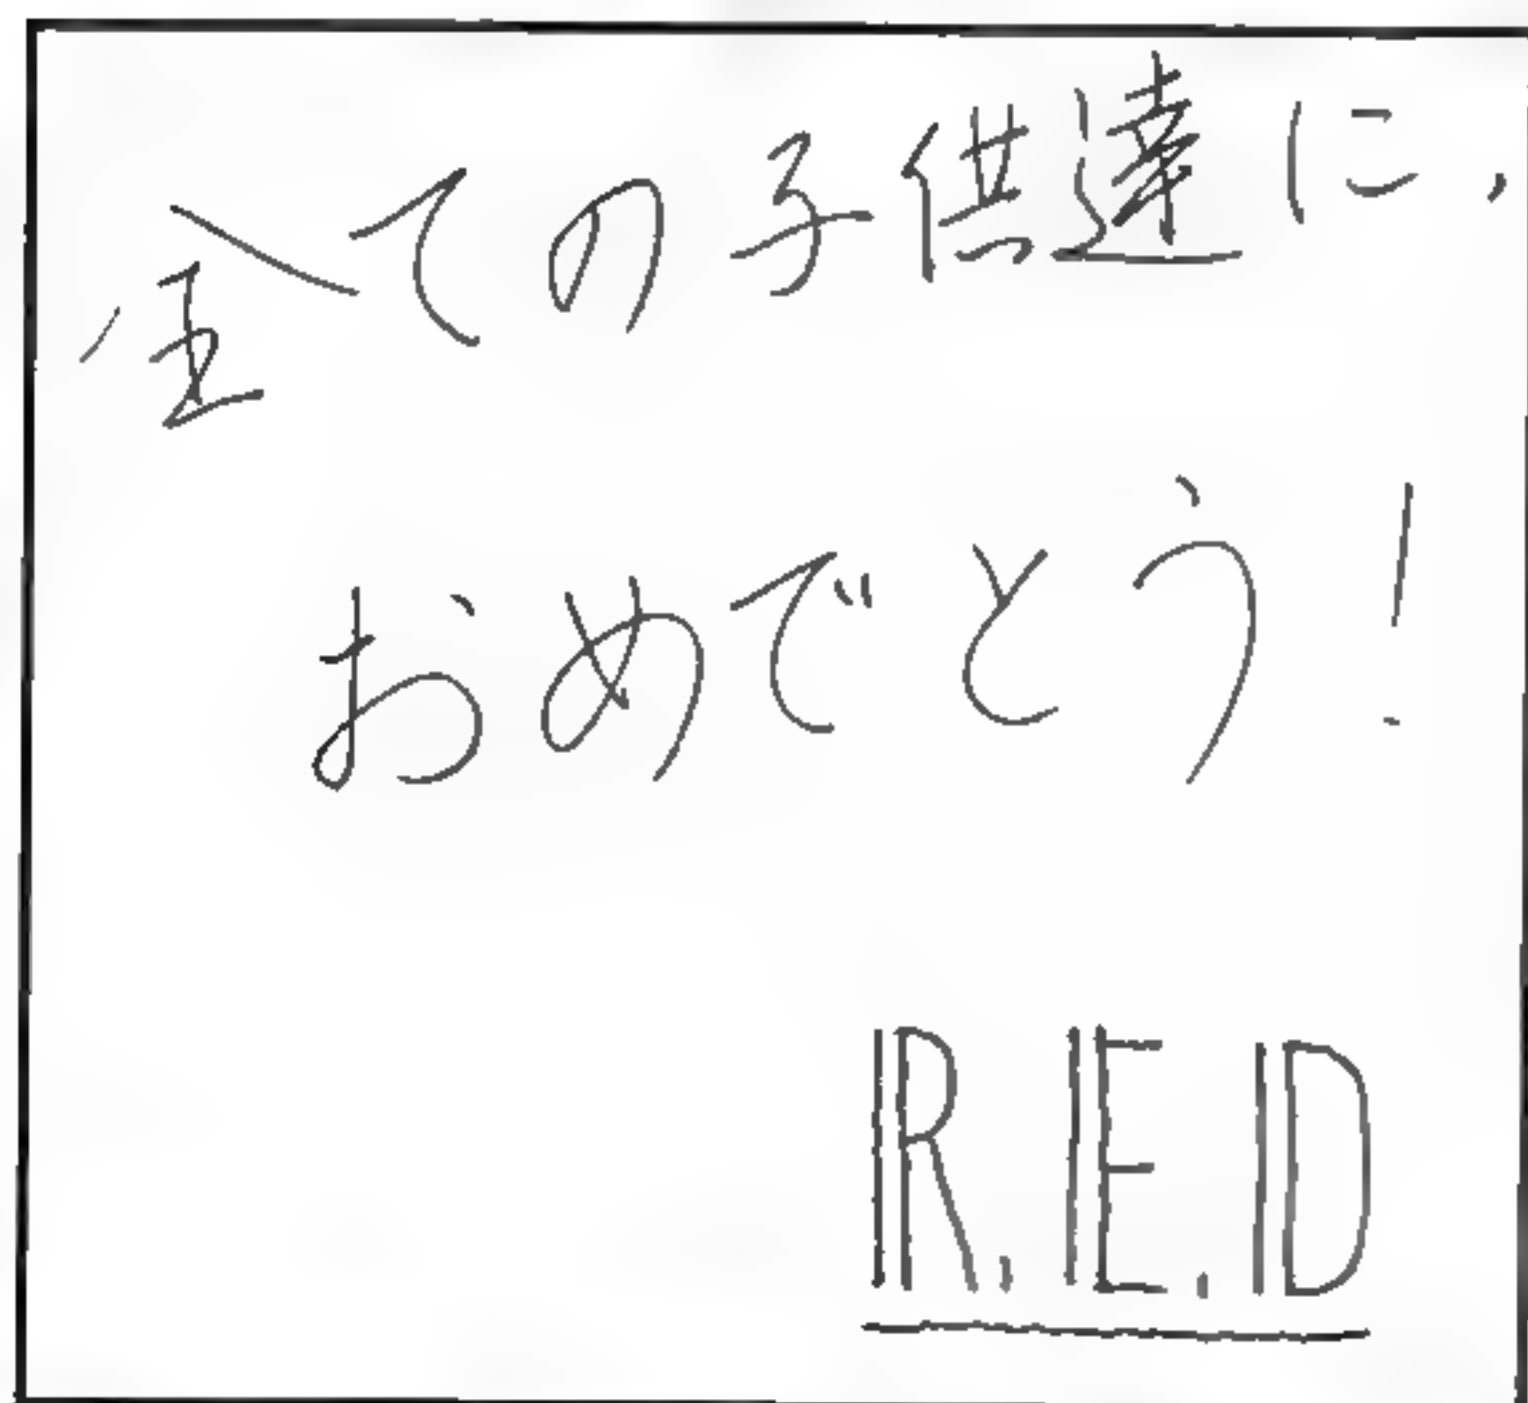 全ての子供達に,
おめでとう!
R.E.D